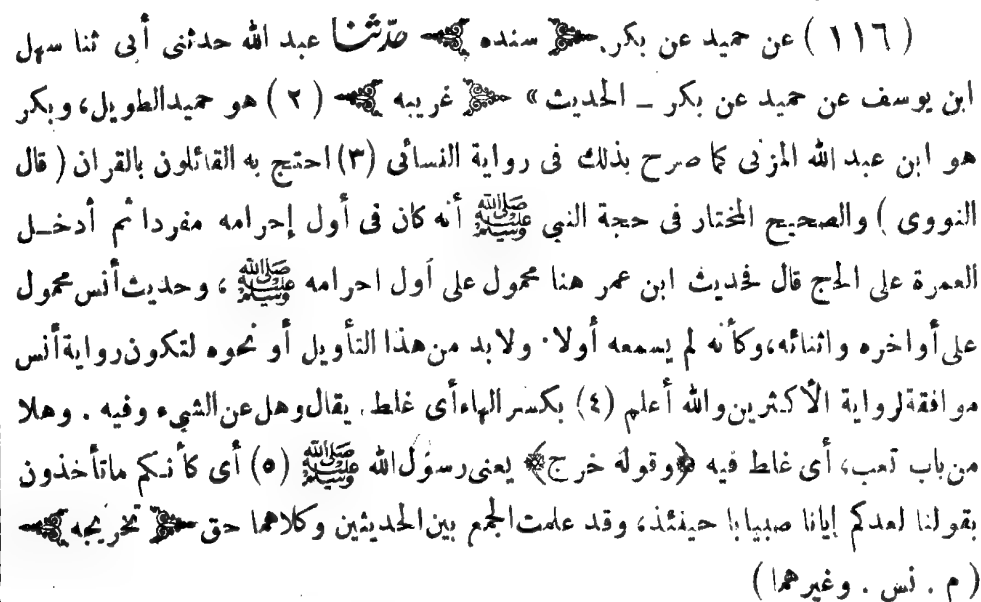 ( ١١٦ ) عن حميد عن بكر. ﴿ سنده ﴾ حدّثنا عبد الله حدثنى أبى ثنا سهل
ابن يوسف عن حميد عن بكر ــ الحديث » ﴿ غريبه ﴾ ( ٢ ) هو حميد الطويل، وبكر
هو ابن عبد الله المزنى كما صرح بذلك فى رواية النسائى (٣) احتج به القائلون بالقران ( قال
النووى ) والصحيح المختار فى حجة النبى ﷺ أنه كان فى أول إحرامه مفردا ثم أدخـل
العمرة على الحج قال فحديث ابن عمر هنا محمول على أول احرامه ﷺ ، وحديث أنس محمول
على أواخره واثنائه، وكأنه لم يسمعه أولا٠ ولا بد من هذا التأويل أو نحوه لتكون رواية أنس
موافقة لرواية الأكثرين والله أعلم (٤) بكسر الهاء أى غلط. يقال وهل عن الشىء وفيه . وهلا
من باب تعب، أى غلط فيه ﴿وقوله خرج﴾ يعنى رسول الله ﷺ (٥) أى كأنكم ما تأخذون
بقولنا لعدكم إيانا صبيانا حينئذ، وقد علمت الجمع بين الحديثين وكلاهما حق ﴿ تخريجه ﴾
( م . نس . وغيرهما )